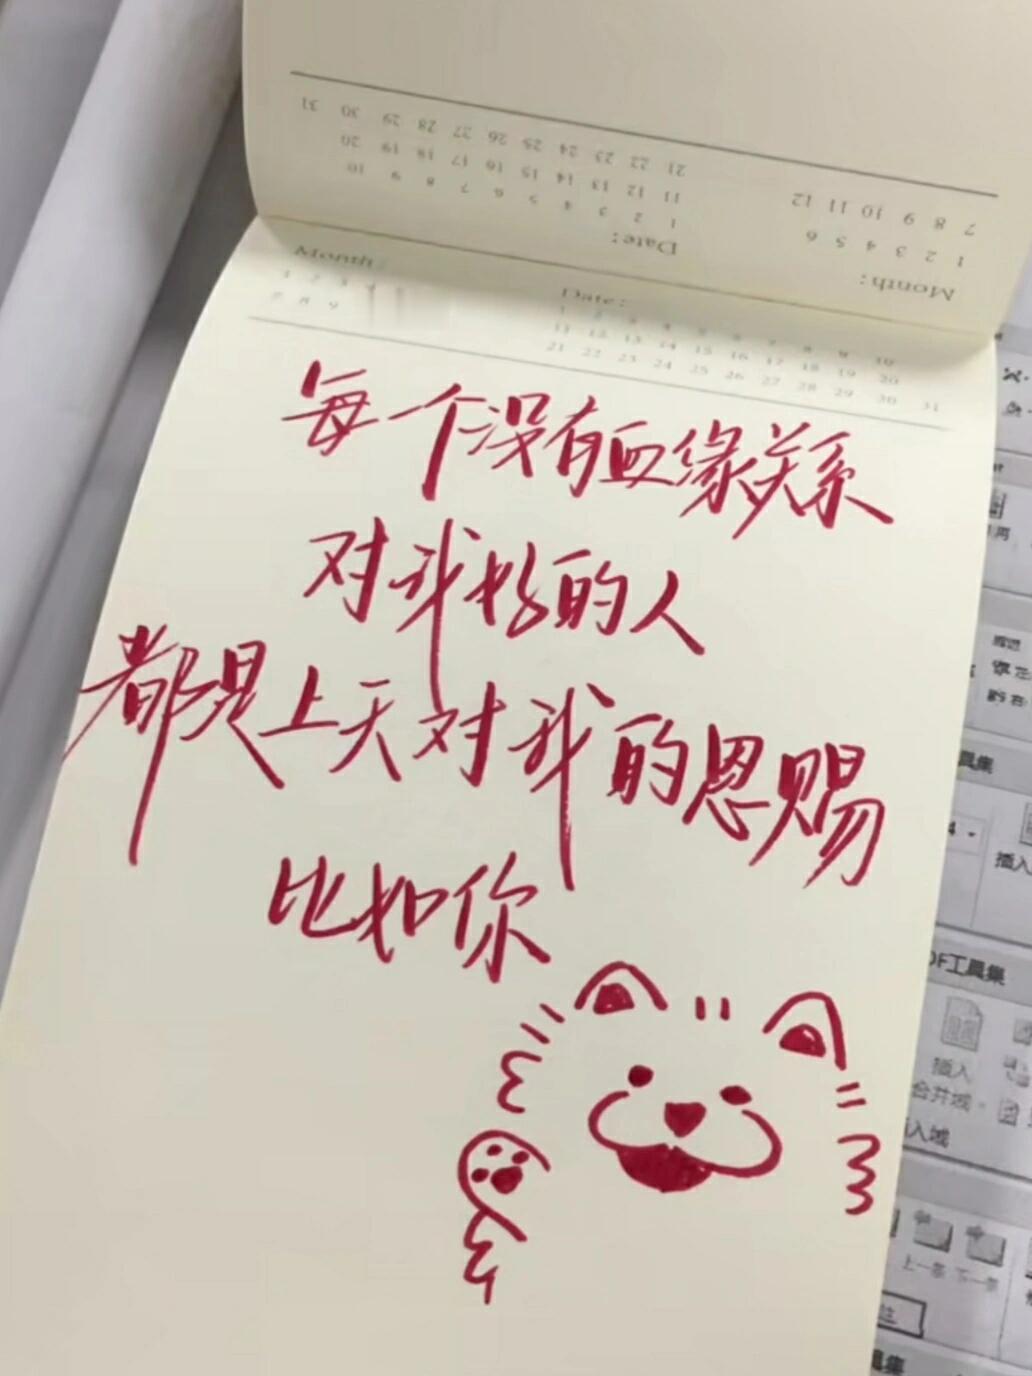 31 30 29 28 27 26 25 24 23 22 21
20 19 18 17 16 15 14 13 12 11
10 9 8 7 6 5 4 3 2 1
Date:
12 11 10 9 8 7
6 5 4 3 2 1
Month:
Month
Date:
11 12 13 14 15 16 17 18 19 20
21 22 23 24 25 26 27 28 29 30 31
每个没有血缘关系
对我好的人
都是上天对我的恩赐
比如你
插入
工具集
插入
合并域
上一条 下一条